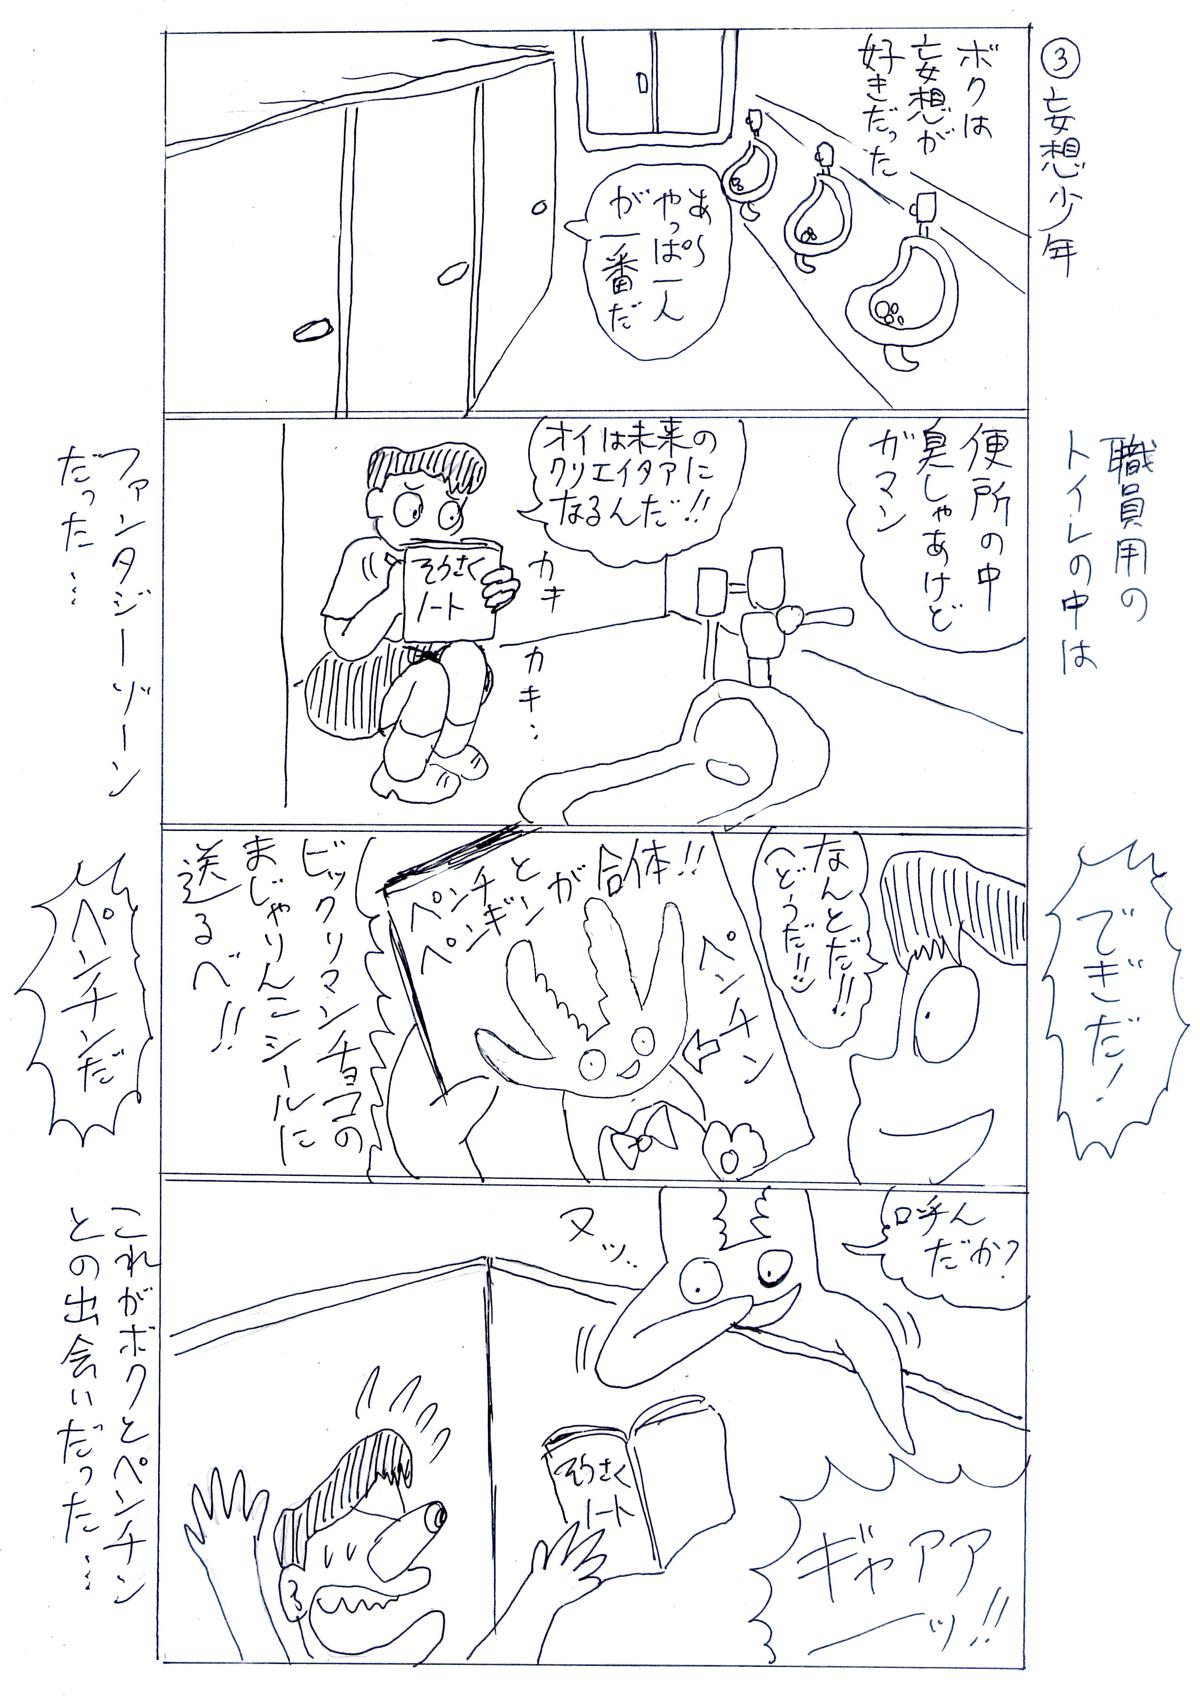 ③妄想少年
ボクは
妄想が
好きだった
あ〜
やっぱ一人
が一番だ
職員用の
トイレの中は
便所の中
臭しゃあけど
ガマン
オイは未来の
クリエイタアに
なるんだ!!
そうさく
ノート
カキ
カキ…
ファンタジーゾーン
だった…
できだ!
なんとだ!!
へどうだ!!
ペンチと
ペンギン
が合体!!
ペンチン
ビックリマンチョコの
まじゃりんこシールに
送るべ!!
ペンチンだ
呼んだか?
ヌッ…
そうさく
ノート
ギャアア
ーッ!!
これがボクとペンチン
との出会いだった…